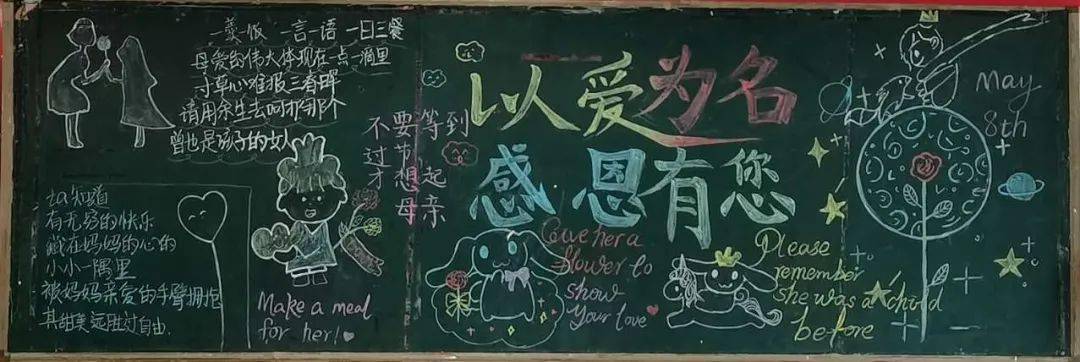 一菜一饭 一言一语 一日三餐
母爱的伟大体现在一点一滴里
寸草心难报三春晖
请用余生去呵护那个
曾也是孩子的女人
ta知道
有无穷的快乐
藏在妈妈的心的
小小一隅里
被妈妈亲爱的手臂拥抱
其甜美远胜过自由.
Make a meal
for her!
不要等到
过节
才想起
母亲
以爱为名
感恩有您
Give her a
flower to
show
your love
Please
remember
she was a child
before
May
8th